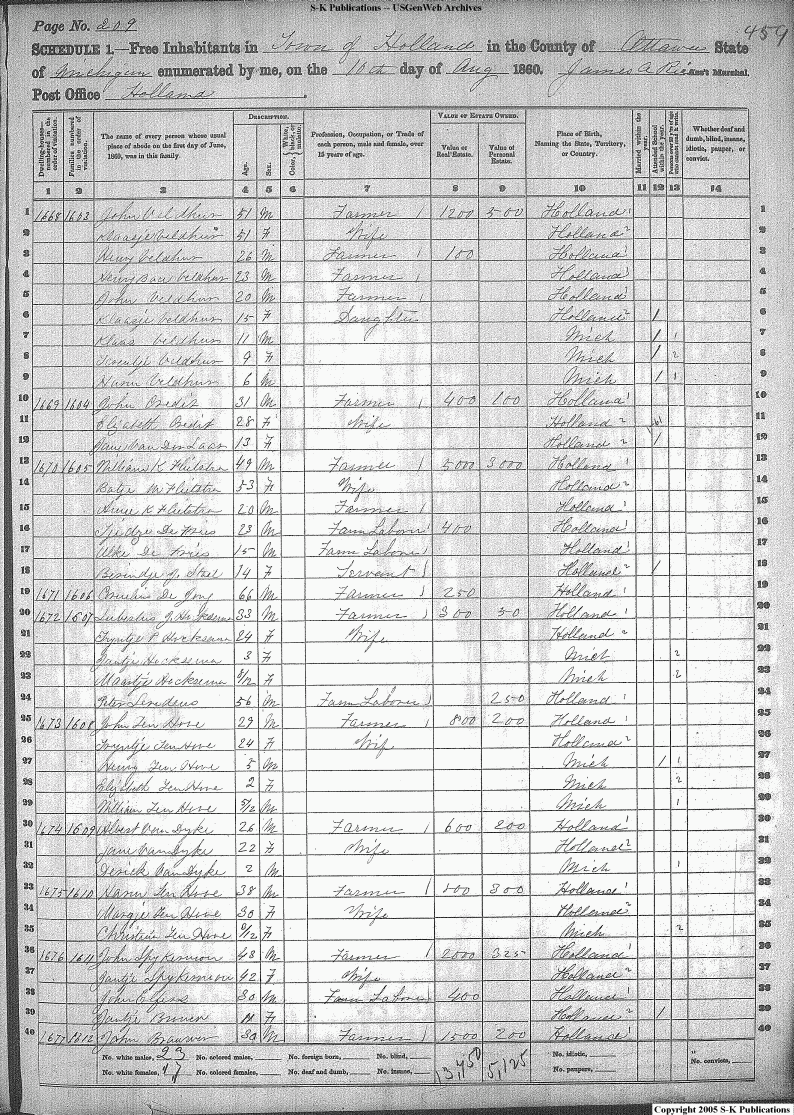 S-K Publications -- USGenWeb Archives
Page No. 209
459
SCHEDULE 1.—Free Inhabitants in Town of Holland in the County of Ottawa State
of Michigan enumerated by me, on the 10th day of Aug 1860. James A Ass't Marshal.
Post Office Holland
Dwelling-houses— numbered in the order of visitation.
Families numbered in the order of visitation.
The name of every person whose usual place of abode on the first day of June, 1860, was in this family.
DESCRIPTION.
Age.
Sex.
Color, White, black, or mulatto.
Profession, Occupation, or Trade of each person, male and female, over 15 years of age.
VALUE OF ESTATE OWNED.
Value of Real Estate.
Value of Personal Estate.
Place of Birth, Naming the State, Territory, or Country.
Married within the year.
Attended School within the year.
Whether deaf and dumb, blind, insane, idiotic, pauper, or convict.
1 2 3 4 5 6 7 8 9 10 11 12 13 14
1 1668 1603 John Veldhuis 51 M Farmer 1 1200 500 Holland 1 1
2 Klaasje Veldhuis 51 F Wife Holland 2 2
3 Henry Veldhuis 26 M Farmer 1 100 Holland 1 3
4 Veldhuis 23 M Farmer 1 Holland 1 4
5 John Veldhuis 20 M Farmer 1 Holland 1 5
6 Klaasje Veldhuis 15 F Daughter Holland 2 / 6
7 Klaas Veldhuis 11 M Mich / 1 7
8 Veldhuis 9 F Mich / 2 8
9 Harm Veldhuis 6 M Mich / 1 9
10 1669 1604 John 31 M Farmer 1 400 100 Holland 1 10
11 Elizabeth 28 F Wife Holland 2 11
12 Jane Van Der Laan 13 F Holland 2 / 12
13 1670 1605 William K Flietstra 49 M Farmer 1 5000 3000 Holland 1 13
14 Batje M Flietstra 53 F Wife Holland 2 14
15 K Flietstra 20 M Farmer 1 Holland 1 15
16 De Vries 23 M Farm Laborer 1 400 Holland 1 16
17 Ulke De Vries 15 M Farm Laborer 1 Holland 1 17
18 14 F Servant 1 Holland 2 / 18
19 1671 1606 Cornelius De Jong 66 M Farmer 1 250 Holland 1 19
20 1672 1607 Hoeksema 33 M Farmer 1 300 50 Holland 1 20
21 Tryntje P Hoeksema 24 F Wife Holland 2 21
22 Jantje Hoeksema 3 F Mich 2 22
23 Maartje Hoeksema /12 F Mich 2 23
24 Peter 56 M Farm Laborer 1 250 Holland 1 24
25 1673 1608 John Ten Hove 29 M Farmer 1 800 200 Holland 1 25
26 Ten Hove 24 F Wife Holland 2 26
27 Henry Ten Hove 5 M Mich / 1 27
28 Elizabeth Ten Hove 2 F Mich 2 28
29 William Ten Hove /12 M Mich 1 29
30 1674 1609 Albert Van Dyke 26 M Farmer 1 600 200 Holland 1 30
31 Jane Van Dyke 22 F Wife Holland 2 31
32 Derick Van Dyke 2 M Mich 1 32
33 1675 1610 Harm Ten Hove 38 M Farmer 1 300 Holland 1 33
34 Margje Ten Hove 30 F Wife Holland 2 34
35 Christein Ten Hove /12 F Mich 2 35
36 1676 1611 John Spykerman 48 M Farmer 1 2000 325 Holland 1 36
37 Jantje Spykerman 42 F Wife Holland 2 37
38 John 30 M Farm Laborer 400 Holland 1 38
39 Jantje F Holland 2 / 39
40 1677 1612 John Brouwer 30 M Farmer 1 1500 200 Holland 1 40
No. white males, 23 No. colored males, No. foreign born, No. blind, 13,450 5,125 No. idiotic, No. convicts,
No. white females, 17 No. colored females, No. deaf and dumb, No. insane, No. paupers,
Copyright 2005 S-K Publications